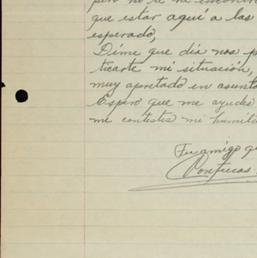 que estar aquí a las
esperado,
Dime que día nos p
ticarte mi situación,
muy apartado en asunto
Espero que me ayudes
me contestes mi humild
Tu amigo q